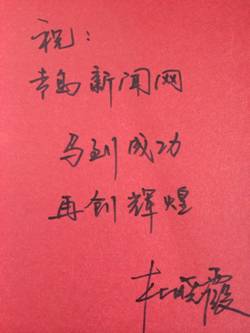 祝：
青岛新闻网
马到成功
再创辉煌
杜晓霞